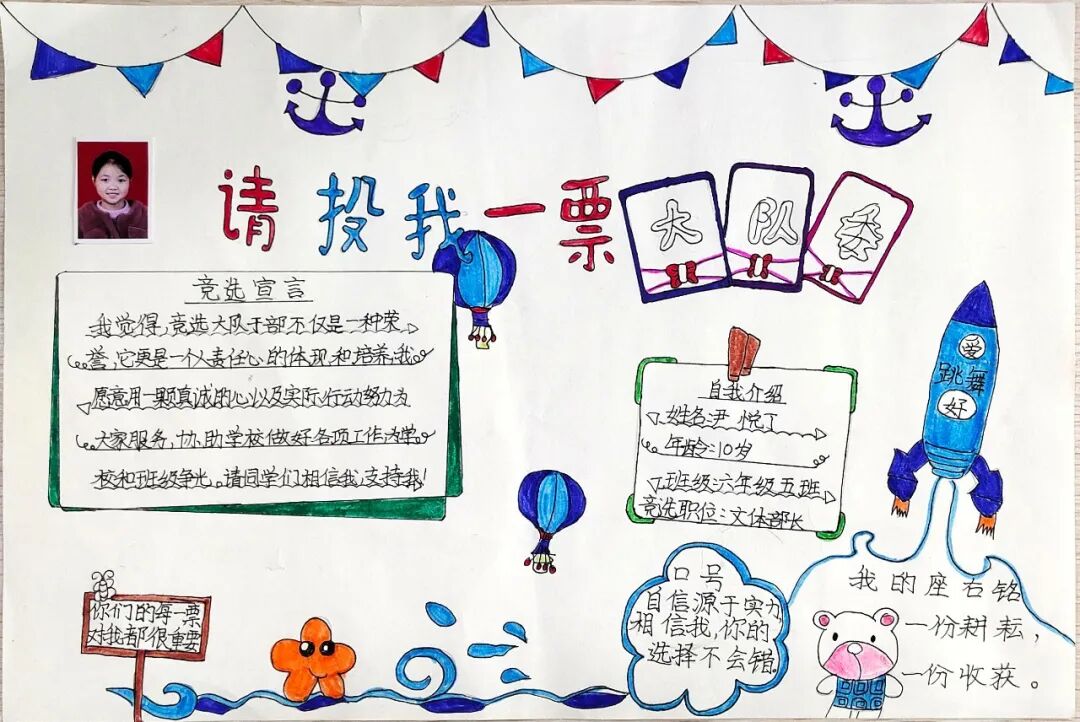 请投我一票
大队委
竞选宣言
我觉得,竞选大队干部不仅是一种荣
誉,它更是一个人责任心的体现和培养,我
愿意用一颗真诚的心以及实际行动努力为
大家服务,协助学校做好各项工作为学
校和班级争光。请同学们相信我,支持我!
自我介绍
姓名:尹悦丁
年龄:10岁
班级:六年级五班
竞选职位:文体部长
爱
跳舞
好
你们的每一票
对我都很重要
口号
自信源于实力,
相信我,你的
选择不会错.
我的座右铭
一份耕耘,
一份收获。